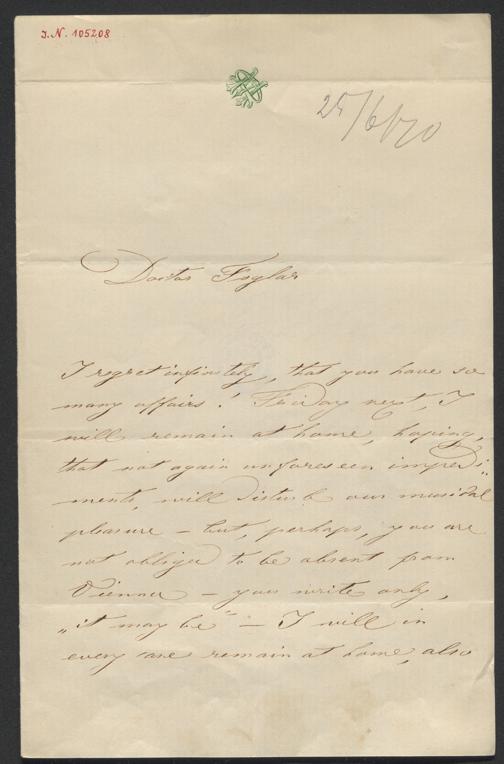 J.N. 105208
25/6/70
Doctor Foglar
I regret infinitely, that you have so
many affairs! Friday next, I
will remain at home, hoping,
that not again unforeseen impedi„
ments, will disturb our musical
pleasure – but, perhaps, you are
not obliged to be absent from
Vienna – you write only,
„it may be" – I will in
every case remain at home, also